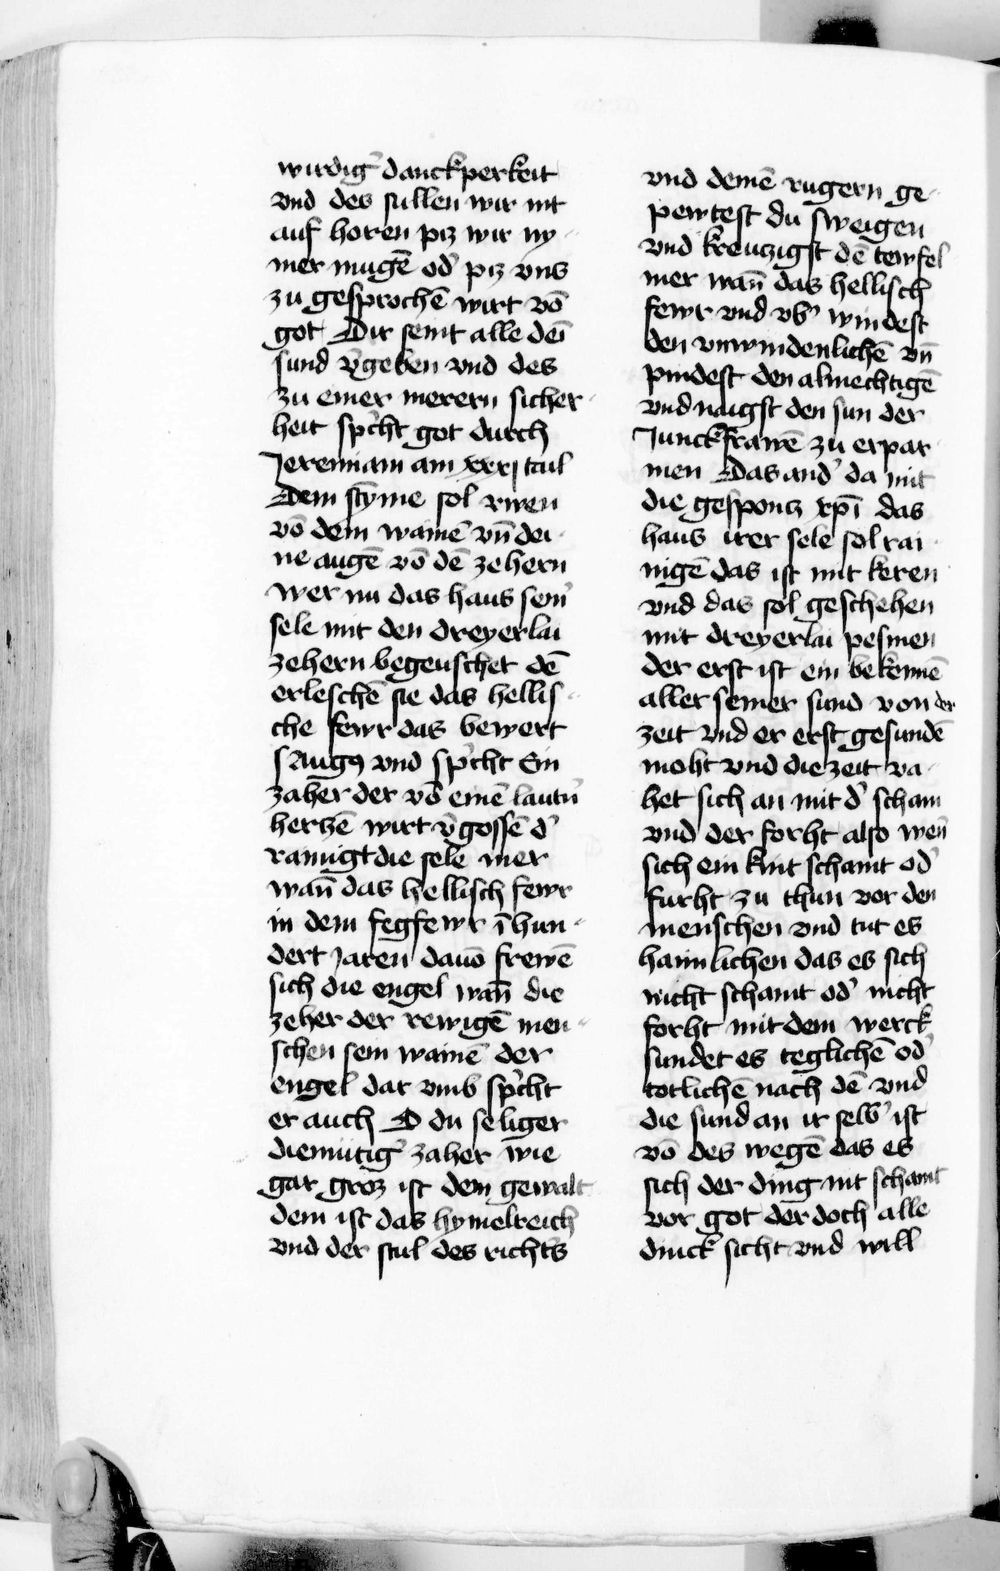 wirdig̛ danckperkeit
vnd des sullen wir nit
auf horen piz wir ny-
mer mugē od̛ piz vns
zu gesprochē wirt vō
got Dir seint alle deī
sund v̛geben vnd des
zu einer merern sicher-
heit sp̛cht got durch
Jeremiam am xxxj caul
Dem stȳme sol rwen
vō dem wainē vn̄ dei-
ne augē vō dē zehern
wer nu das haus sein̛
sele mit den dreyerlai
zehern begeuschet dē
erleschē sie das hellis-
che fewr das bewert
s Augꝰ vnd sp̛cht Ein
zaher der vō einē laut̛n
hertzē wirt v̛gossē d̛
rainigt die sele mer
wan̄ das hellisch fewr
in dem fegfewr ī hun-
dert Jaren dauō frewē
sich die engel wan̄ die
zeher der rewigē men-
schen sein wainē der
engel dar vmb sp̛cht
er auch O du seliger
diemutig̛ zaher wie
gar groz ist dein gewalt
dem ist das hymelreich
vnd der stul des richt̛s
vnd deinē rugern ge-
pewtest du sweigen
vnd kreutzigst dē tewfel
mer wan̄ das hellisch
fewr vnd vb̛ windest
den vnwindenlichē vn̄
pindest den almechtigē
vnd naigst den sun der
Junckfrawē zu erpar-
men Das and̛ da mit
die gesponz xp̄i das
haus irer sele sol rai-
nigē das ist mit keren
vnd das sol geschehen
mit dreyerlai pesmen
der erst ist ein bekennē
aller seiner sund von der
zeit vnd er erst gesundē
moht vnd die zeit va-
het sich an mit d̛ scham
vnd der forht also wen̄
sich ein kint schamt od̛
furht zu thun vor den
menschen vnd tut es
haimlichen das es sich
nicht schamt od̛ nicht
forht mit dem werck
sundet es teglichē od̛
totlichē nach dē vnd
die sund an ir selb̛ ist
vō des wegē das es
sich der ding nit schamt
vor got der doch alle
dinck sicht vnd will